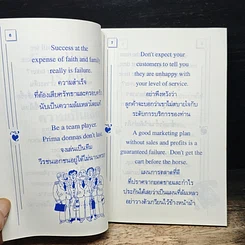 6
Success at the
expense of faith and family
really is failure.
ความสำเร็จ
ที่ต้องเสียศรัทธาและครอบครัว
นับเป็นความล้มเหลวโดยแท้
Be a team player.
Prima donnas don't last.
จงเล่นเป็นทีม
วีรชนเอกชนอยู่ได้ไม่นานหรอก
7
Don't expect your
customers to tell you
they are unhappy with
your level of service.
อย่าหวังว่า
ลูกค้าจะบอกว่าเขาไม่สบายใจกับ
ระดับการบริการของท่าน
A good marketing plan
without sales and profits is a
guaranteed failure. Don't get the
cart before the horse.
แผนการตลาดที่ดี
ที่ปราศจากยอดขายและกำไร
ประกันได้เลยว่าเป็นแผนที่ล้มเหลว
อย่าวางตัวเกวียนไว้ข้างหน้าม้า